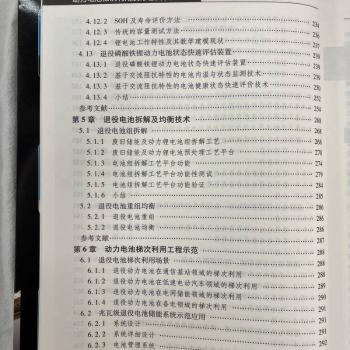 4.12.2 SOH及寿命评价方法 234
4.12.3 传统的容量测试方法
4.12.4 锂电池工作特性及其数学建模现状
4.13 退役磷酸铁锂动力电池状态快速评估装置
4.13.1 退役磷酸铁锂动力电池状态快速评估装置
4.13.2 基于交流阻抗特性的电池内温与状态监测技术
4.13.3 基于交流阻抗特性的电池健康状态快速评价技术
4.13.4 小结
参考文献
第5章 退役电池拆解及均衡技术
5.1 退役电池组拆解
5.1.1 废旧储能及动力锂电池组拆解工艺
5.1.2 废旧储能及动力锂电池预处理工艺平台
5.1.3 电池组拆解工艺平台功能
5.1.4 电池组拆解工艺平台功能性测试
5.1.5 电池组拆解工艺平台功能验证
5.1.6 小结
5.2 退役电池重组均衡
5.2.1 退役电池重组
5.2.2 退役电池均衡
参考文献
第6章 动力电池梯次利用工程示范
6.1 退役电池梯次利用场景
6.1.1 退役动力电池在通信基站领域的梯次利用
6.1.2 退役动力电池在低速电动汽车领域的梯次利用 289
6.1.3 退役动力电池在电网储能领域的梯次利用 290
6.1.4 退役动力电池在备电领域的梯次利用 291
6.2 兆瓦级退役电池储能系统示范应用 291
6.2.1 系统设计 291
6.2.2 系统详细设计 292
6.2.3 电池管理系统 292